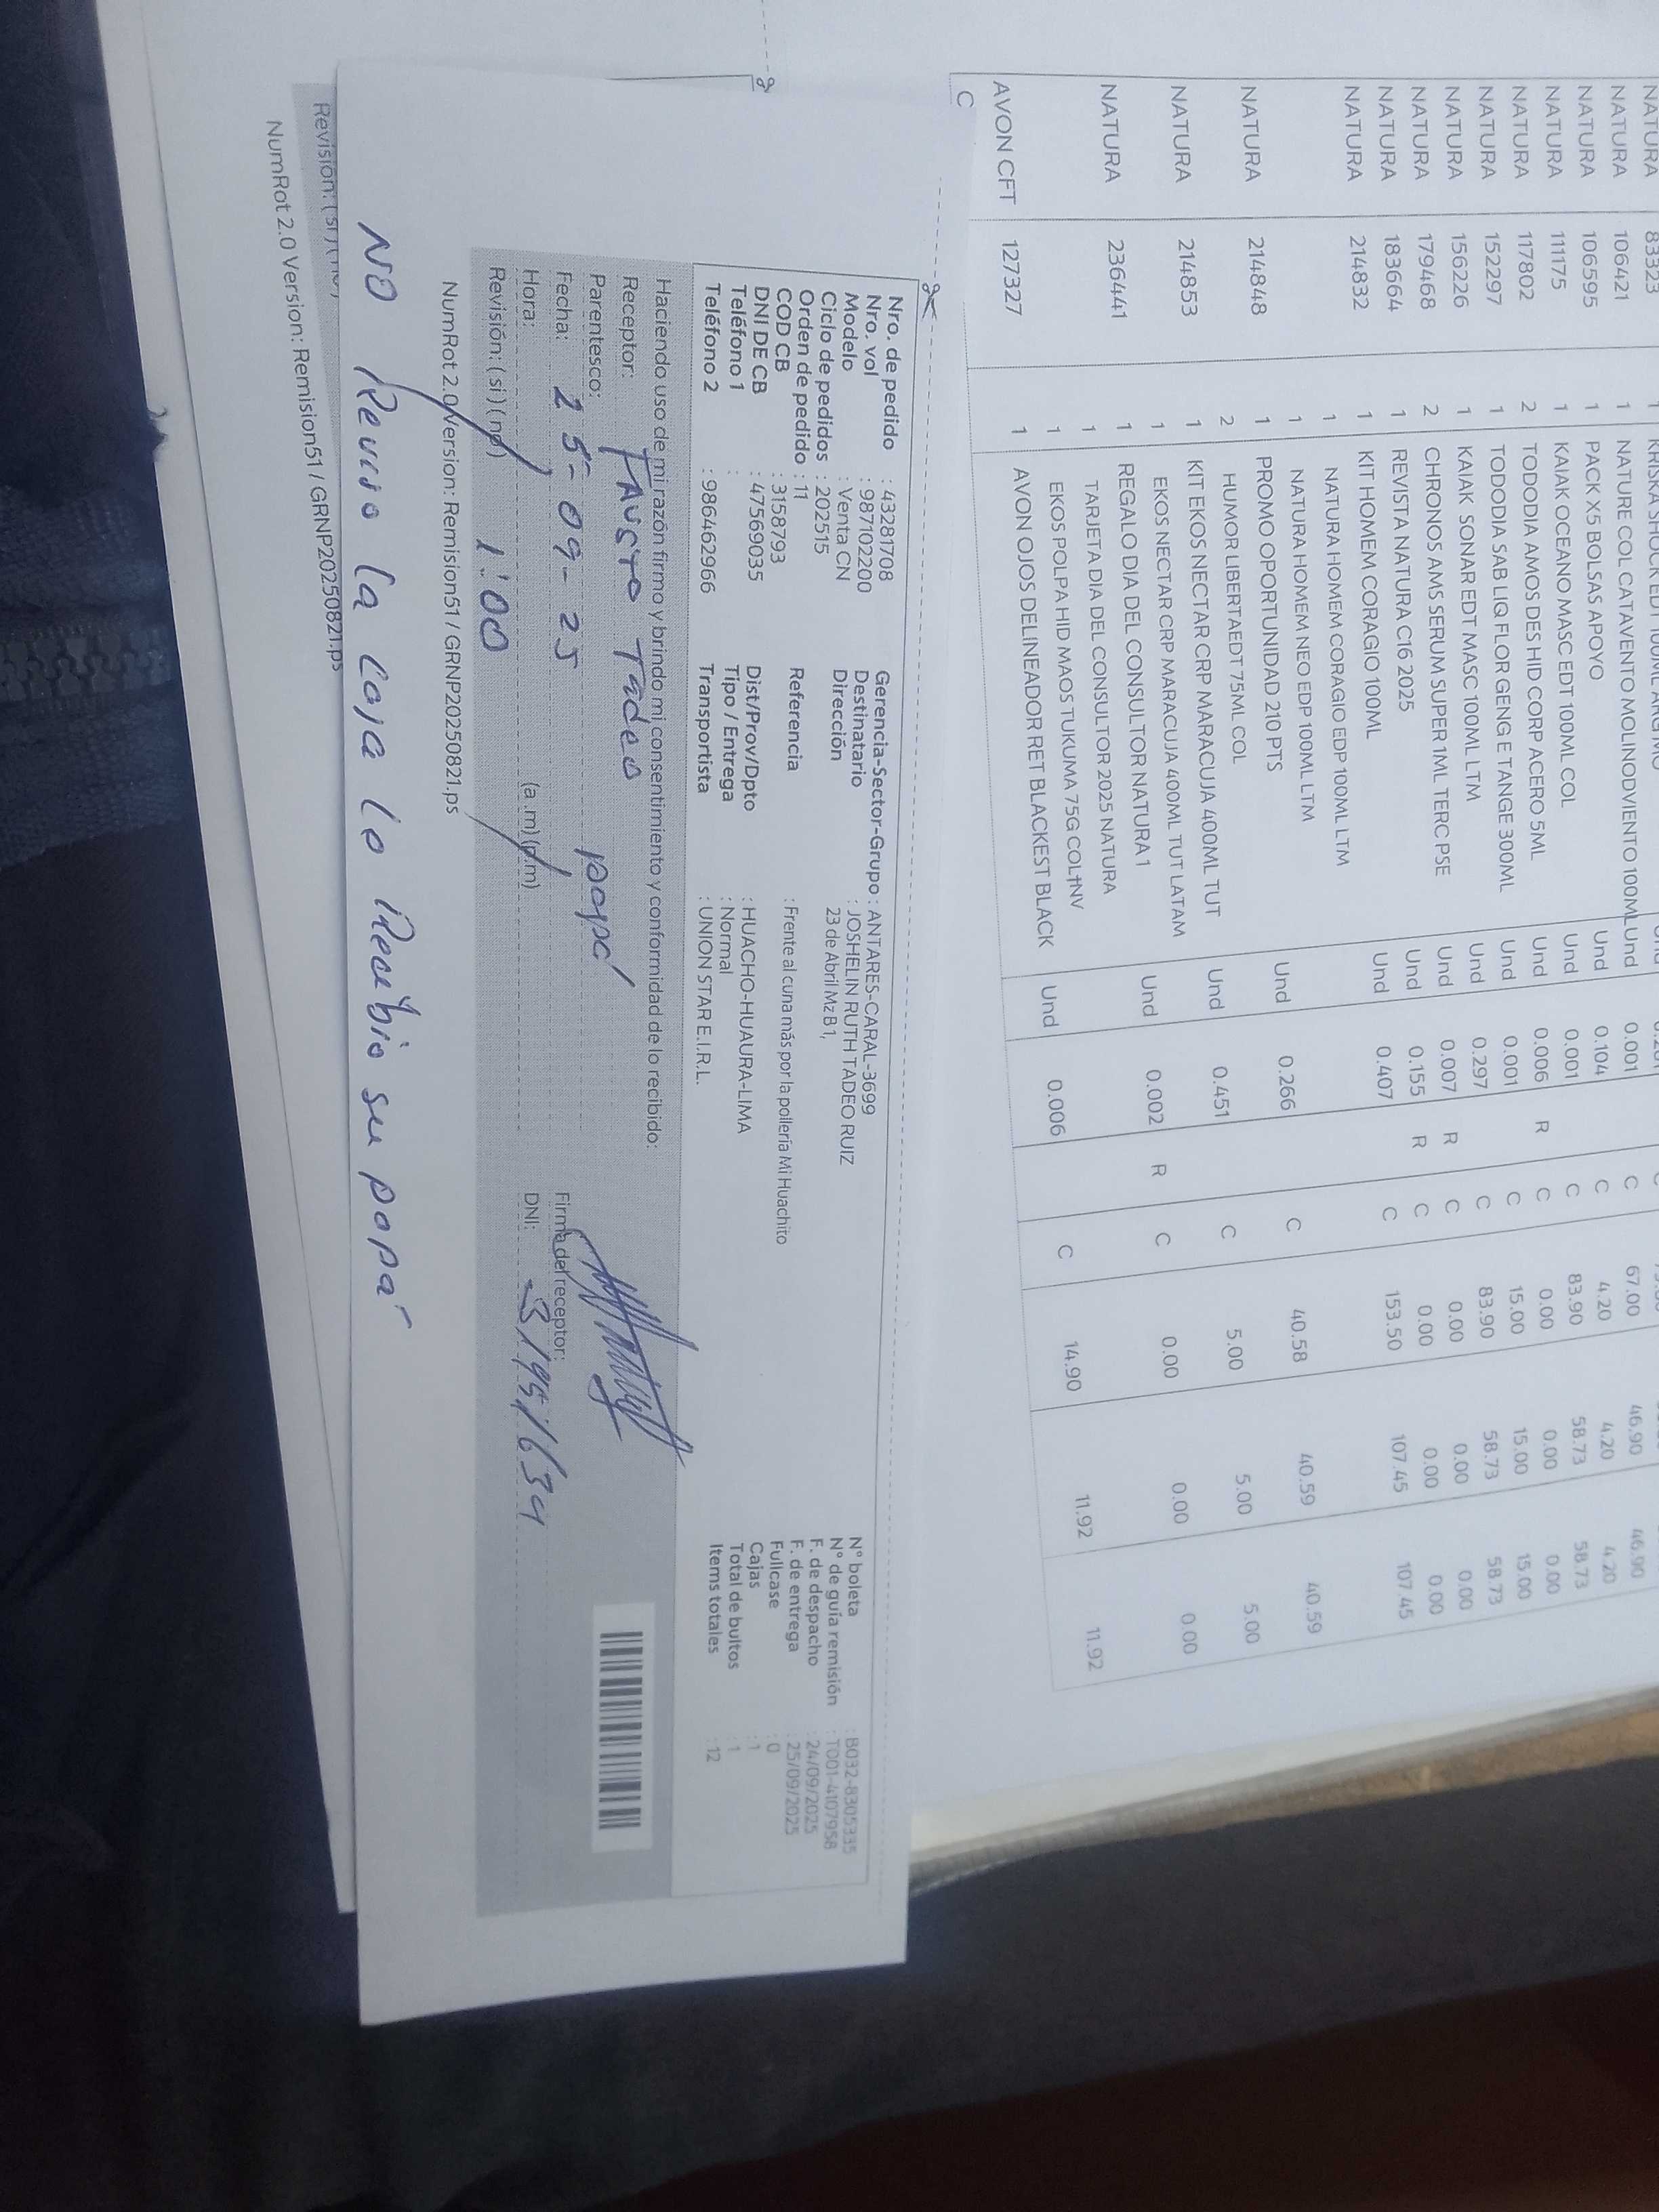 NATURA 83323 1
NATURA 106421 1 NATURE COL CATAVENTO MOLINODVIENTO 100ML Und 0.001 C 67.00 46.90 46.90
NATURA 106595 1 PACK X5 BOLSAS APOYO Und 0.104 C 4.20 4.20 4.20
NATURA 111175 1 KAIAK OCEANO MASC EDT 100ML COL Und 0.001 C 83.90 58.73 58.73
NATURA 117802 2 TODODIA AMOS DES HID CORP ACERO 5ML Und 0.006 R C 0.00 0.00 0.00
NATURA 152297 1 TODODIA SAB LIQ FLOR GENG E TANGE 300ML Und 0.001 C 15.00 15.00 15.00
NATURA 156226 1 KAIAK SONAR EDT MASC 100ML LTM Und 0.297 C 83.90 58.73 58.73
NATURA 179468 2 CHRONOS AMS SERUM SUPER 1ML TERC PSE Und 0.007 R C 0.00 0.00 0.00
NATURA 183664 1 REVISTA NATURA C16 2025 Und 0.155 R C 0.00 0.00 0.00
NATURA 214832 1 KIT HOMEM CORAGIO 100ML Und 0.407 C 153.50 107.45 107.45
1 NATURA HOMEM CORAGIO EDP 100ML LTM
1 NATURA HOMEM NEO EDP 100ML LTM
NATURA 214848 1 PROMO OPORTUNIDAD 210 PTS Und 0.266 C 40.58 40.59 40.59
2 HUMOR LIBERTA EDT 75ML COL
NATURA 214853 1 KIT EKOS NECTAR CRP MARACUJA 400ML TUT Und 0.451 C 5.00 5.00 5.00
1 EKOS NECTAR CRP MARACUJA 400ML TUT LATAM
NATURA 236441 1 REGALO DIA DEL CONSULTOR NATURA 1 Und 0.002 R C 0.00 0.00 0.00
1 TARJETA DIA DEL CONSULTOR 2025 NATURA
1 EKOS POLPA HID MAOS TUKUMA 75G COL+NV
AVON CFT 127327 1 AVON OJOS DELINEADOR RET BLACKEST BLACK Und 0.006 C 14.90 11.92 11.92
C
Nro. de pedido : 43281708 Gerencia-Sector-Grupo : ANTARES-CARAL-3699 N° boleta : B032-8305335
Nro. vol : 987102200 Destinatario : JOSHELIN RUTH TADEO RUIZ N° de guía remisión : T001-4107958
Modelo : Venta CN Dirección 23 de Abril Mz B 1, F. de despacho : 24/09/2025
Ciclo de pedidos : 202515 F. de entrega : 25/09/2025
Orden de pedido : 11 Referencia : Frente al cuna más por la polleria Mi Huachito Fullcase : 0
COD CB : 3158793 Cajas : 1
DNI DE CB : 47569035 Dist/Prov/Dpto : HUACHO-HUAURA-LIMA Total de bultos : 1
Teléfono 1 : Tipo / Entrega : Normal Items totales : 12
Teléfono 2 : 986462966 Transportista : UNION STAR E.I.R.L.
Haciendo uso de mi razón firmo y brindo mi consentimiento y conformidad de lo recibido:
Receptor: Fausto Tadeo
Parentesco: papá
Fecha: 25-09-25 Firma del receptor:
Hora: 1:00 (a.m) (p.m) DNI:
Revisión: ( si ) ( no )
NumRot 2.0 Version: Remision51 / GRNP20250821.ps
NO Reviso la caja lo Recibio su papá
Revisión: ( si ) ( no )
NumRot 2.0 Version: Remision51 / GRNP20250821.ps